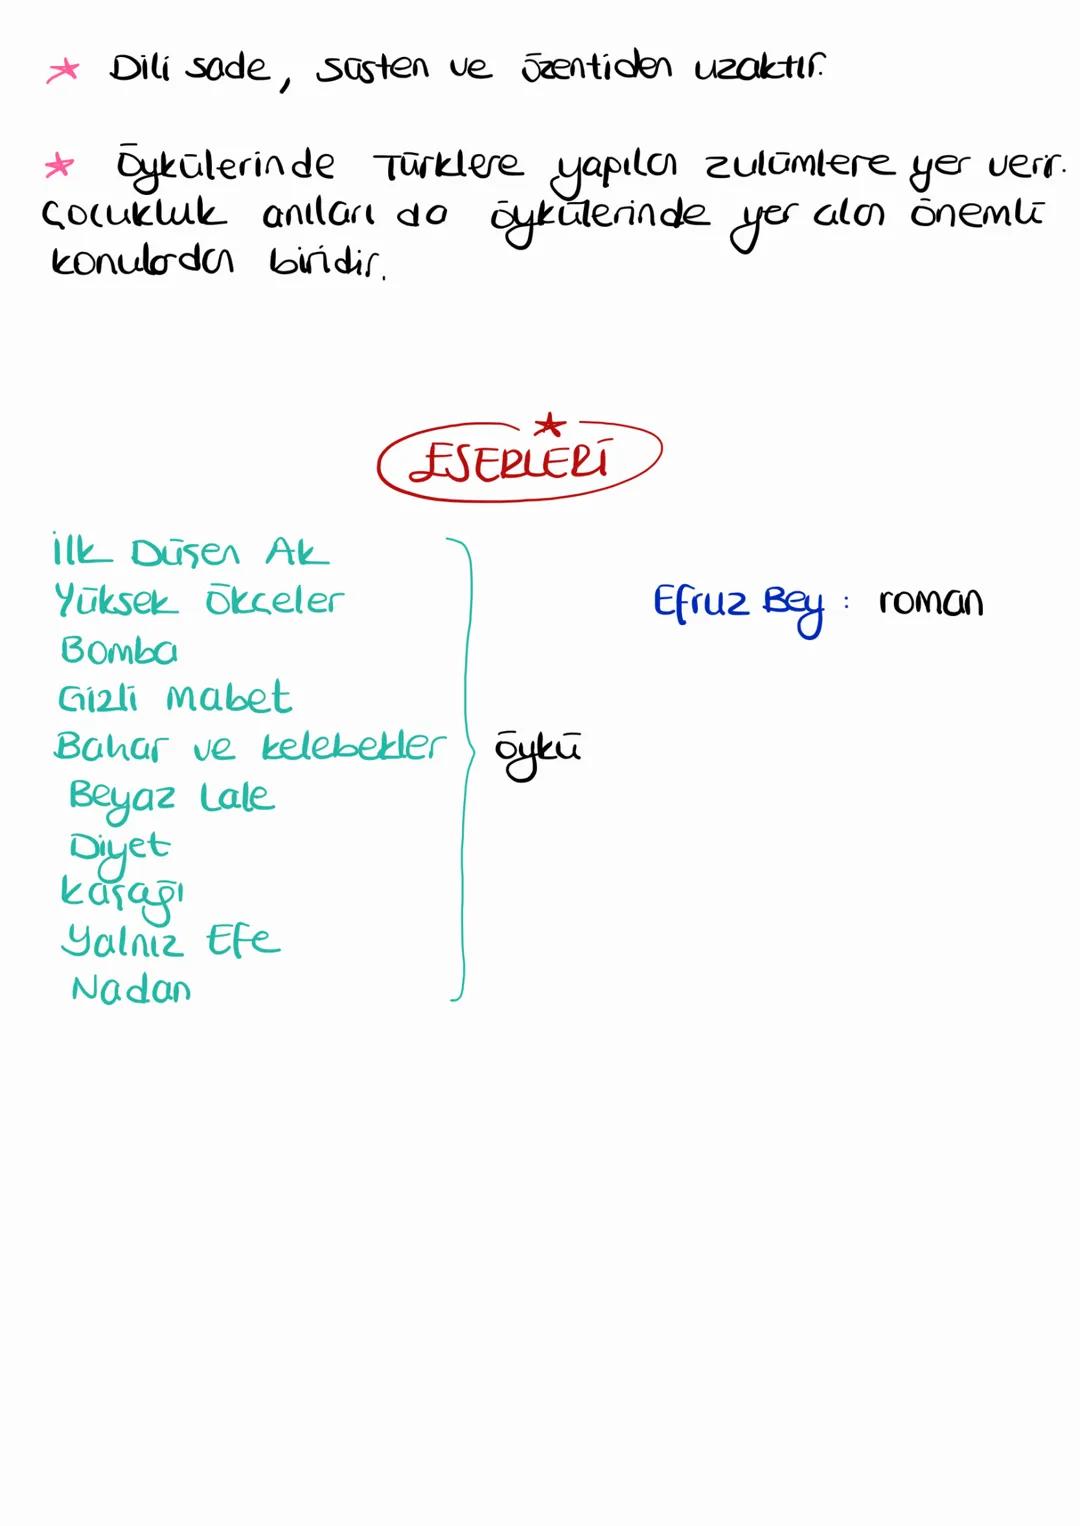 Dili sade, süsten ve özentiden uzaktır.
Öykülerinde Türklere yapılan zulümlere yer verir.
Çocukluk anıları da öykülerinde yer alan önemli
konulardan biridir.
ESERLERİ
İlk Düşen Ak
Yüksek Ökçeler
Efruz Bey : roman
Bomba
Gizli Mabet
Bahar ve kelebekler
öykü
Beyaz Lale
Diyet
kaşağı
Yalnız Efe
Nadan